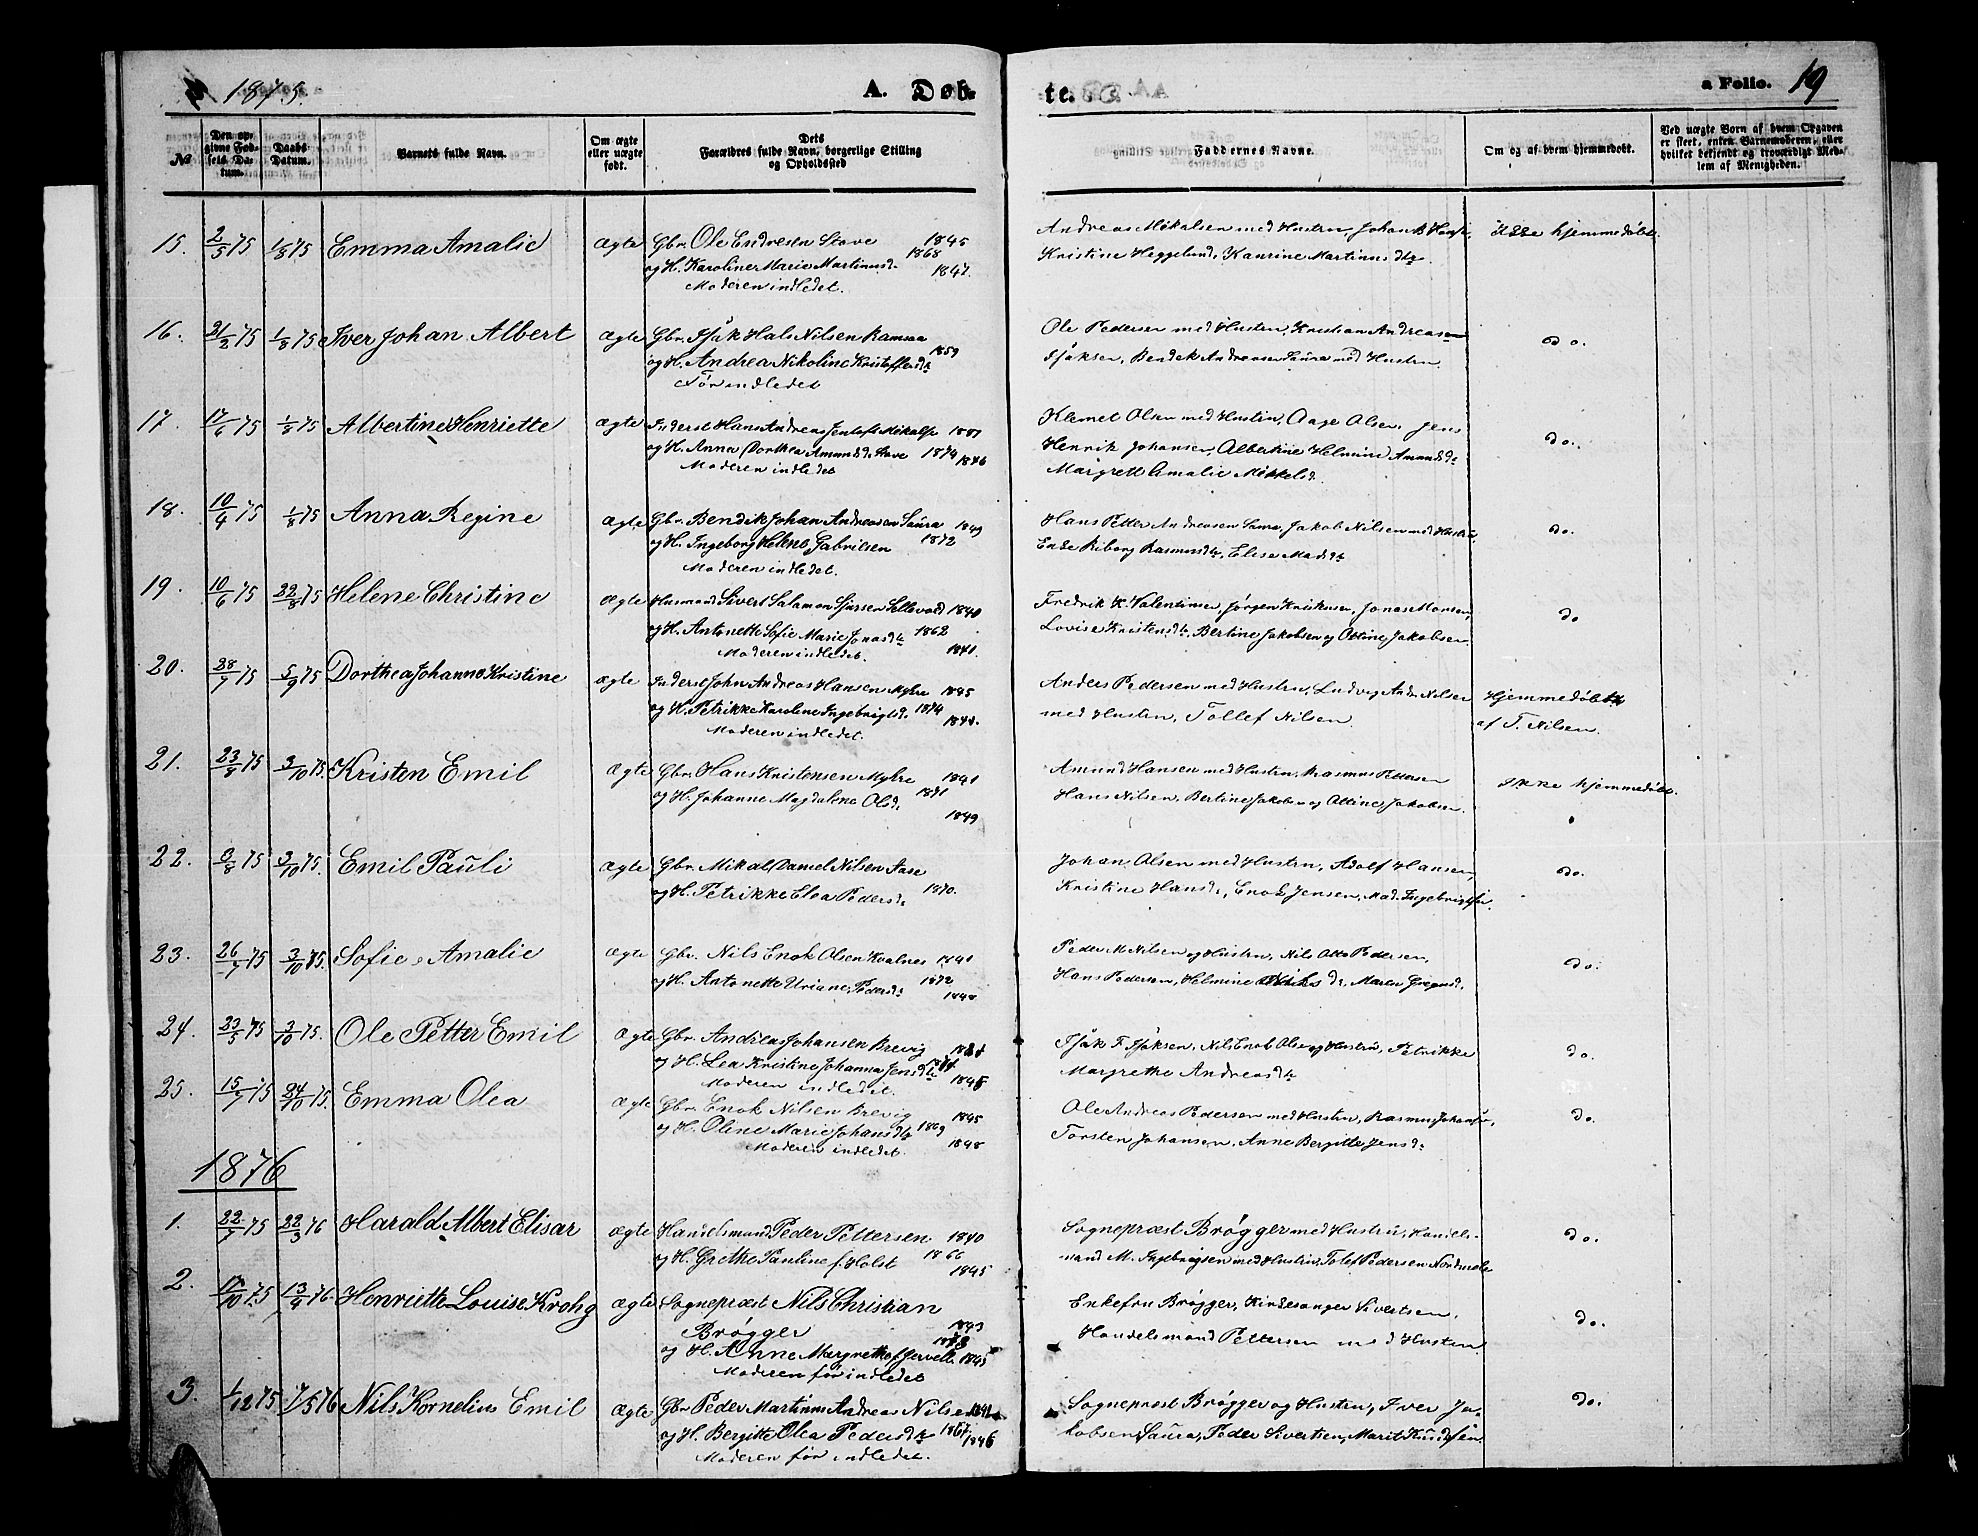 1875.
A. Døb-
te.
a Folio. 19
№
Den opgivne Fødsels Datum.
Daabs Datum.
Barnets fulde Navn.
Om ægte eller uægte født.
Dets Forældres fulde Navn, borgerlige Stilling og Opholdssted
Faddernes Navne.
Om og af hvem hjemmedøbt.
Ved uægte Børn af hvem Opgaven er skeet, enten Barnemoderen, eller hvilket bekjendt og troværdigt Medlem af Menigheden.
15. 2/5 75 1/8 75 Emma Amalie ægte Gbr. Ole Endresen Stave 1845
og H. Karoline Marie Martinusd. 1868 1847.
Moderen indledet.
Andreas Mikalsen med Hustru, Johan B. Hans
Kristine Heggelund, Kanrine Martinusdtr.
Ikke hjemmedøbt.
16. 21/2 75 1/8 75 Iver Johan Albert ægte Gbr. Isak Hals Nilsen Ramsaa
og H. Andrea Nikoline Kristoffersdtr 1859
Før indledet
Ole Pedersen med Hustru, Kristian Andreasen
Isaksen, Bendik Andreasen Saura med Hustru
do.
17. 17/6 75 1/8 75 Albertine Henriette ægte Inderst Hans Andreas Jentoft Mikalsen
og H. Anna Dorthea Amundsd. Stave 1874 1846
Moderen indledet
Klemet Olsen med Hustru, Aage Olsen, Jens
Henrik Johansen, Albertine Helmine Amundsd.
Margrett Amalie Mikkelsd.
do.
18. 10/4 75 1/8 75 Anna Regine ægte Gbr. Bendik Johan Andreasen Saura 1849
og H. Ingeborg Helene Gabrilsen 1872
Moderen indledet.
Hans Petter Andreasen Saura, Jakob Nilsen med Hustru,
Enke Riborg Rasmusdtr, Elise Madsdtr
do.
19. 10/6 75 22/8 75 Helene Christine ægte Husmand Sivert Salamon Sjursen Sellevold 1840
og H. Antonette Sofie Marie Jonasdtr 1862
Moderen indledet. 1841.
Fredrik K. Valentinsen, Jørgen Kristiansen, Jonas Monsen,
Lovise Kristensdtr, Bertine Jakobsen og Ottine Jakobsen.
do
20. 28/7 75 5/9 75 Dorthea Johanne Kristine ægte Inderst John Andreas Hansen Myhre 1845
og H. Petrikke Karoline Ingebrigtsd. 1874
Moderen indledet.
Anders Pedersen med Hustru, Ludvig Andr. Nilsen
med Hustru, Tollef Nilsen.
Hjemmedøbt
af T. Nilsen.
21. 23/8 75 3/10 75. Kristen Emil ægte Gbr. Hans Kristensen Myhre 1841
og H. Johanne Magdalene Olsd. 1871
1849
Amund Hansen med Hustru, Rasmus Pettersen
Hans Nilsen, Bertine Jakobsen og Ottine Jakobsen.
Ikke hjemmedøbt.
22. 8/8 75 3/10 75. Emil Pauli ægte Gbr. Mikal Daniel Nilsen Aase
og H. Petrikke Elea Pedersd. 1870.
Johan Olsen med Hustru, Adolf Hansen,
Kristine Hansd., Enok Jensen, Mad. Ingebrigtsen.
do.
23. 26/7 75 3/10 75. Sofie Amalie ægte Gbr. Nils Enok Olsen Kvalnes 1841
og H. Antonette Uriane Pedersd. 1872
1848
Peder M. Nilsen og Hustru, Nils Otto Pedersen,
Hans Pedersen, Helmine Nils d., Maren Gregusd.
do.
24. 23/5 75 3/10 75. Ole Petter Emil ægte Gbr. Andreas Johansen Brevig
og H. Lea Kristine Johanna Jensdtr
Moderen indledet. 1846
Isak F. Isaksen, Nils Enok Olsen og Hustru, Petrikke
Margrethe Andreasdtr
do.
25. 15/7 75 24/10 75. Emma Olea ægte Gbr. Enok Nilsen Brevig 1845
og H. Oline Marie Johansdtr 1869
Moderen indledet. 1848
Ole Andreas Pedersen med Hustru, Rasmus Johansen,
Torsten Johansen, Anne Bergitte Jensd.
do.
1876
1. 22/7 75 22/3 76 Harald Albert Elisar ægte Handelsmand Peder Pettersen 1840
og H. Grethe Pauline f. Holst 1866
1845
Sogneprest Brøgger med Hustru, Handels-
mand M. Ingebrigtsen med Hustru, Tolef Pedersen Nordmele
do.
2. 17/10 75. 13/4 76. Henriette Louise Krohg ægte Sogneprest Nils Christian
Brøgger 1843
og H. Anne Margrethe f. Jervell 1845
Moderen før indledet
Enkefru Brøgger, Kirkesanger Sivertsen,
Handelsmand Pettersen med Hustru.
do.
3. 1/12 75 7/5 76 Nils Kornelius Emil ægte Gbr. Peder Martinus Andreas Nilsen 1842
og H. Bergitte Olea Pedersdtr 1867 1846
Moderen før indledet.
Sogneprest Brøgger og Hustru, Iver Ja-
kobsen Saura, Peder Sivertsen, Marit Knudsen.
do.